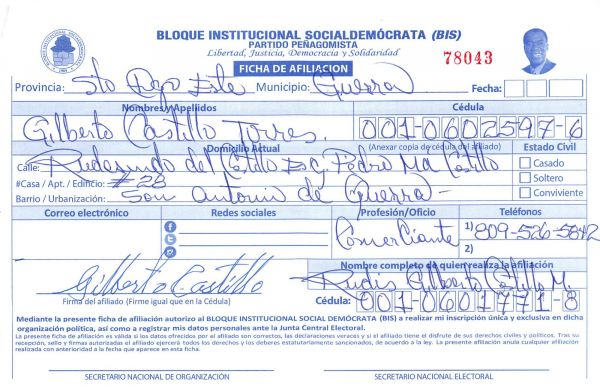 BLOQUE INSTITUCIONAL SOCIALDEMÓCRATA (BIS)
PARTIDO PEÑAGOMISTA
Libertad, Justicia, Democracia y Solidaridad
78043
FICHA DE AFILIACION
Provincia: Sto Dgo Este Municipio: Guerra Fecha:
Nombres y Apellidos Cédula
Gilberto Castillo Torres. 001-0602597-6
Domicilio Actual (Anexar copia de cédula del afiliado) Estado Civil
Calle: del Castillo Esq. Pedro Ma Castillo Casado
#Casa / Apt. / Edificio: #28 Soltero
Barrio / Urbanización: San Antonio de Guerra - Conviviente
Correo electrónico Redes sociales Profesión/Oficio Teléfonos
Comerciante 1) 809-526-5842
2)
Nombre completo de quien realiza la afiliación
Gilberto Castillo Rudis Gilberto Castillo M.
Firma del afiliado (Firme igual que en la Cédula) Cédula: 001-0601771-8
Mediante la presente ficha de afiliación autorizo al BLOQUE INSTITUCIONAL SOCIAL DEMÓCRATA (BIS) a realizar mi inscripción única y exclusiva en dicha
organización política, así como a registrar mis datos personales ante la Junta Central Electoral.
La presente ficha de afiliación es válida si los datos ofrecidos por el afiliado son correctos, las declaraciones veraces y si el afiliado tiene el disfrute de sus derechos civiles y políticos. Tras su
recepción, sello y firmas autorizadas el afiliado ejercerá todos los derechos y los deberes estatutariamente sancionados, de acuerdo a la ley. La presente afiliación anula cualquier afiliación
realizada con anterioridad a la fecha que aparece en esta ficha.
SECRETARIO NACIONAL DE ORGANIZACIÓN SECRETARIO NACIONAL ELECTORAL